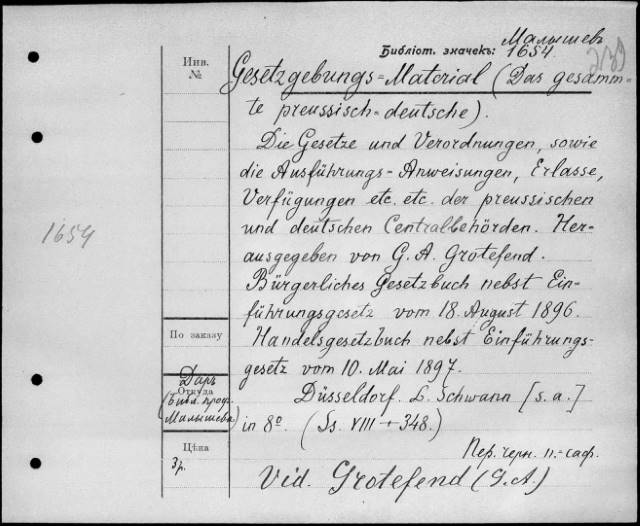 Библіот. значекъ: Малышевъ
1654.
Инв.
№
Gesetzgebungs=Material (Das gesamm-
te preussisch-deutsche).
Die Gesetze und Verordnungen, sowie
die Ausführungs-Anweisungen, Erlasse,
Verfügungen etc. etc. der preussischen
und deutschen Centralbehörden. Her-
ausgegeben von G. A. Grotefend.
Bürgerliches Gesetzbuch nebst Ein-
führungsgesetz vom 18. August 1896.
Handelsgesetzbuch nebst Einführungs-
gesetz vom 10. Mai 1897.
Düsseldorf. L. Schwann [s. a.]
in 8º. (Ss. VIII + 348.)
Пер. черн. п.-саф.
Vid. Grotefend (G. A.)
1654
По заказу
Даръ
Откуда
(Библ. проф.
Малышева)
Цѣна
3 р.